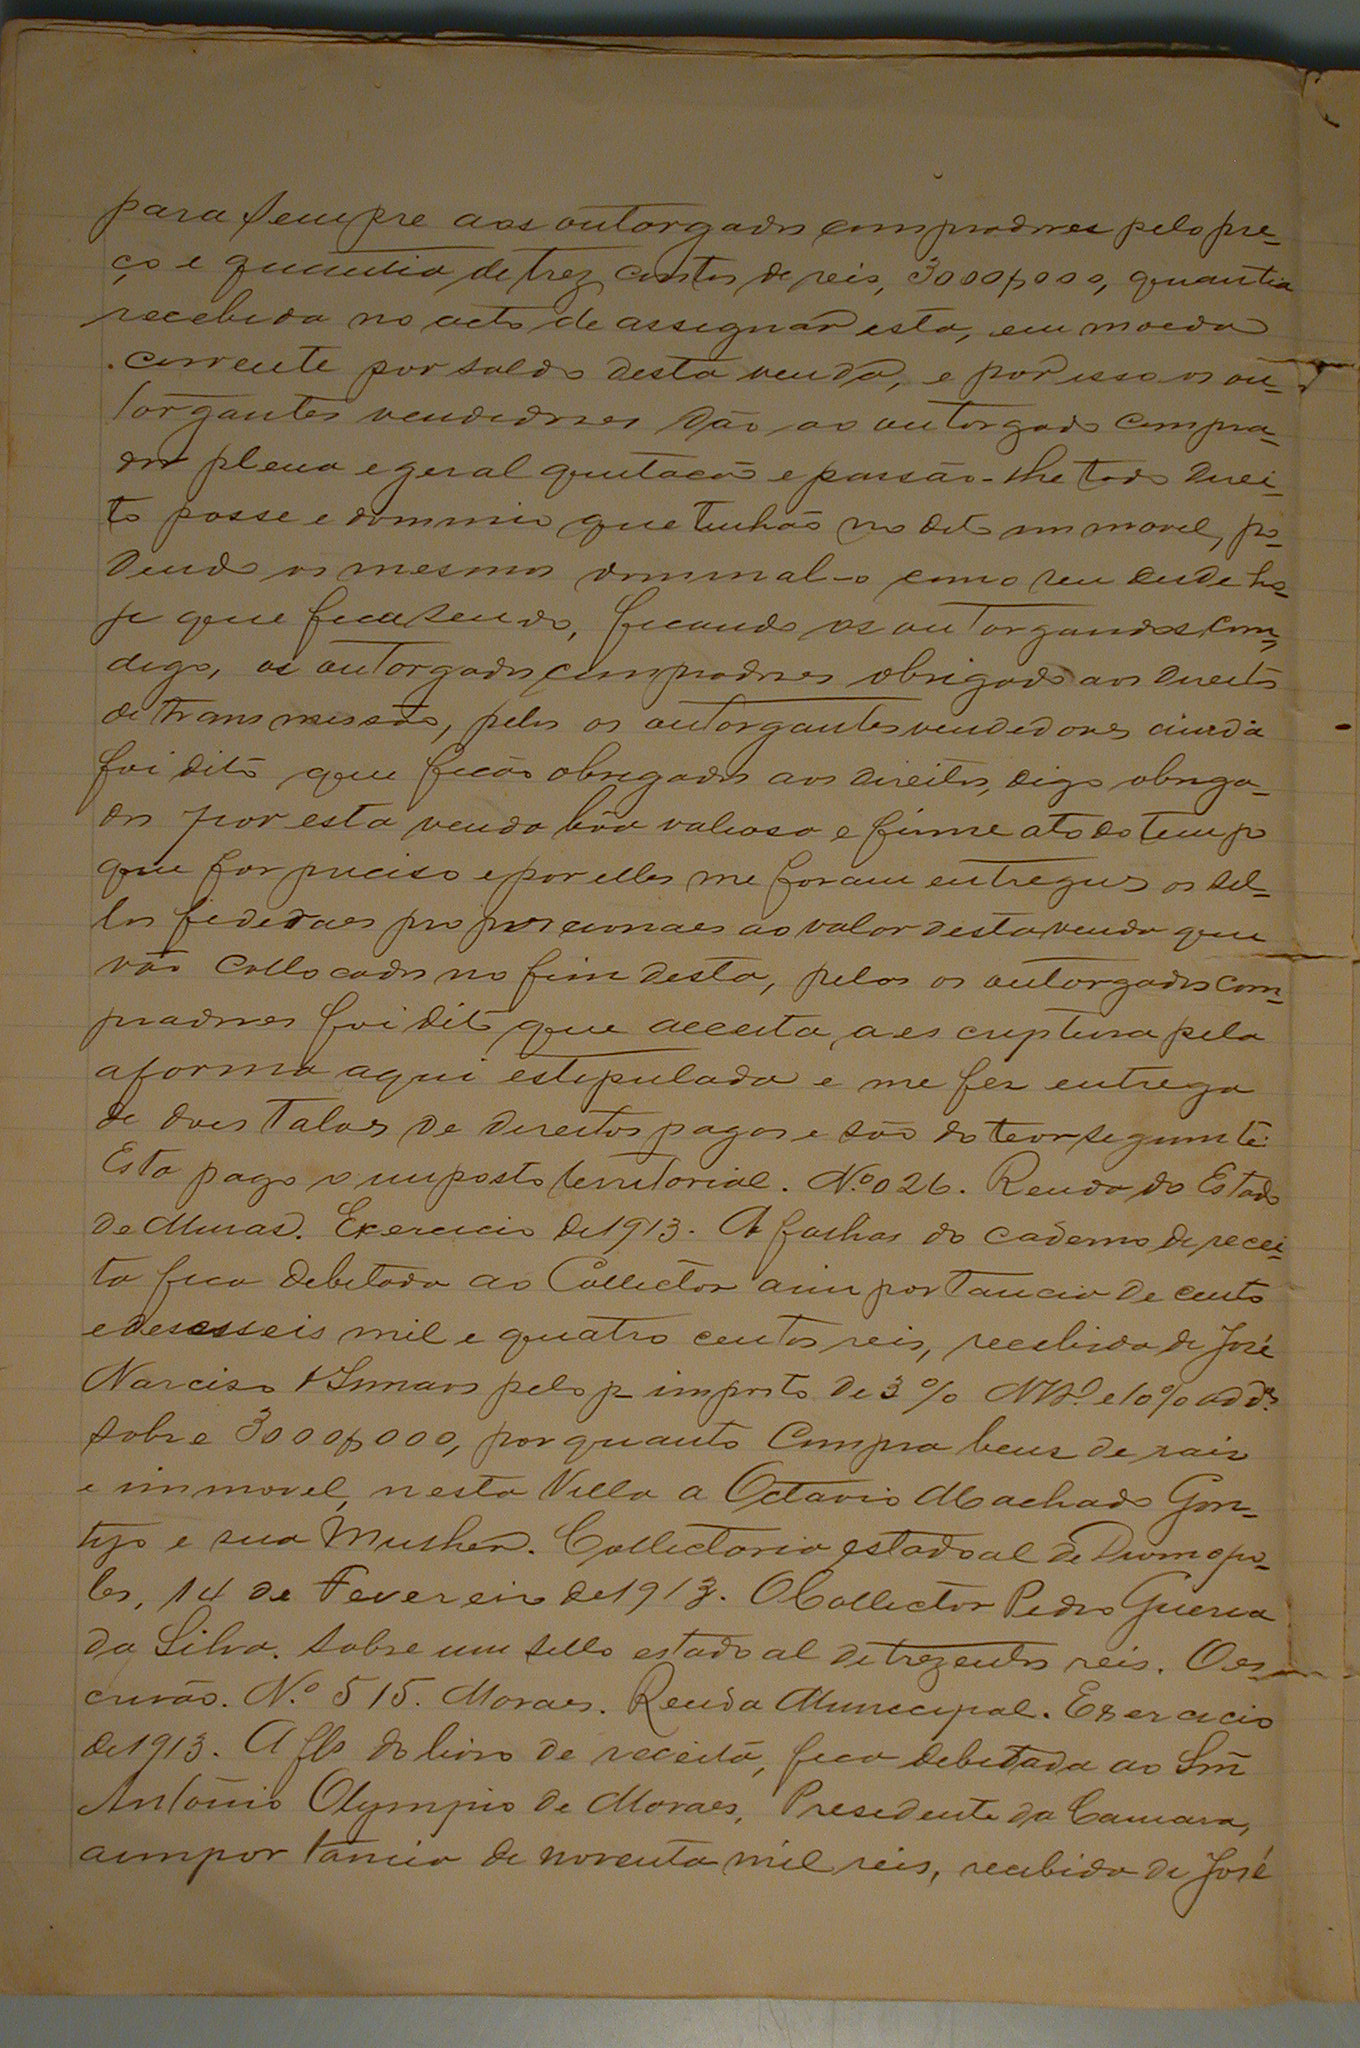 para sempre aos outorgados compradores pelo pre-
ço e quantia de trez contos de reis, 3000$000, quantia
recebida no acto de assegnar esta, em moeda
corrente por saldo desta venda, e por isso os ou-
torgantes vendedores dão ao outorgado compra-
dor plena e geral quitacão e passão-lhe todo direi-
to posse e dominio que tinhão no dito immovel, po-
dendo os mesmos dominal-o como seu desde ho-
je que fica sendo, ficando os outorgandos com,
digo, os outorgados compradores obrigado aos direitos
de transmissão, pelos os outorgantes vendedores ainda
foi dito que ficão obrigados aos direitos, digo obriga-
dos por esta venda bôa valiosa e firme a todo tempo
que for preciso e por elles me foram entregues os sel-
los federaes proporcionaes ao valor desta venda que
vão collocados no fim desta, pelos os outorgados com-
pradores foi dito que acceita a escriptura pela
a forma aqui estipulada e me fez entrega
de dois talos de direitos pagos e são do teor seguinte:
Esta pago o imposto territorial. Nº 026. Renda do Estado
de Minas. Exercicio de 1913. A folhas do caderno de recei-
ta fica debitada ao Collector a importancia de cento
e desesseis mil e quatro centos reis, recebida de José
Narciso & Irmaos pelo imposto de 3% e 10% add.
sobre 3000$000, por quanto compra bens de raiz
e immovel, nesta Villa a Octavio Machado Gon-
tijo e sua Mulher. Collectoria estadoal de Divinopo-
les, 14 de Fevereiro de 1913. O Collector Pedro Guerra
da Silva. Sobre um sello estadoal de trezentos reis. O es-
crivão. N.º 515. Moraes. Renda Municipal. Exercicio
de 1913. A fls do livro de receita, fica debitada ao Snr
Antonio Olympio de Moraes, Presidente da Camara,
a importancia de noventa mil reis, recebida de José